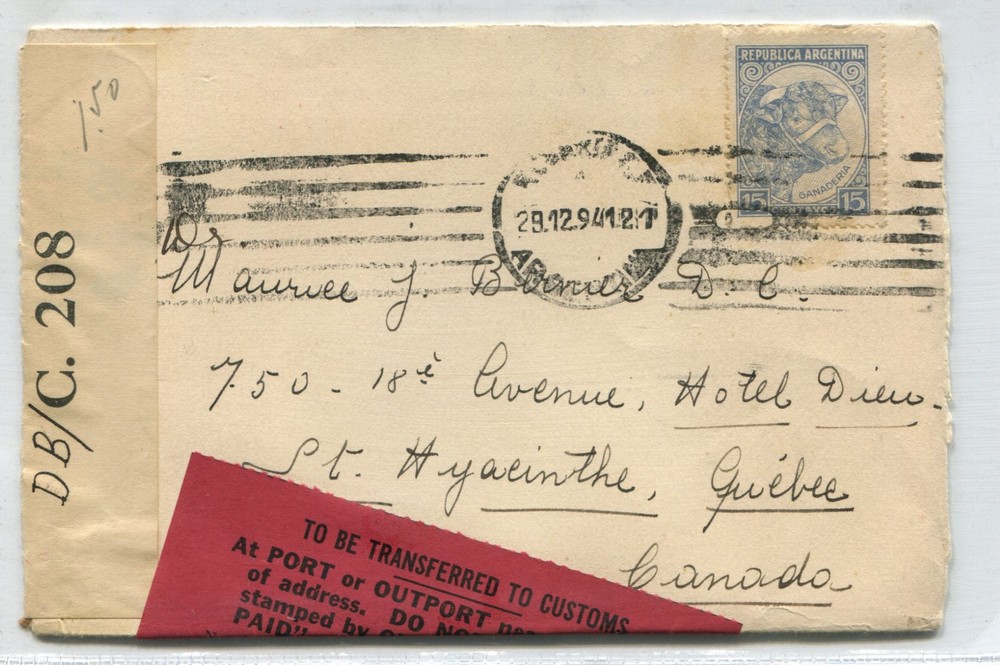 1.50
DB/C. 208
REPUBLICA ARGENTINA
GANADERIA
15 15
29.12.941 21
Dr
Maurice J. Bernier D. C.
750 - 18è Avenue, Hotel Dieu -
St. Hyacinthe, Québec
Canada
TO BE TRANSFERRED TO CUSTOMS
At PORT or OUTPORT nea
of address. DO NO
stamped by
PAID"